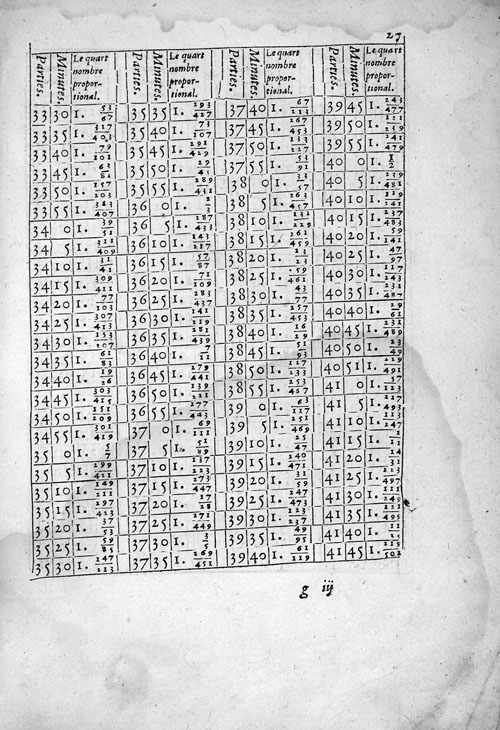 27
Parties. Minutes. Le quart nombre propor-tional. Parties. Minutes. Le quart nombre propor-tional. Parties. Minutes. Le quart nombre propor-tional. Parties. Minutes. Le quart nombre propor-tional.
33 30 I. 53/67 35 35 I. 293/427 37 40 I. 67/113 39 45 I. 243/477
33 35 I. 317/403 35 40 I. 73/107 37 45 I. 267/453 39 50 I. 121/239
33 40 I. 79/101 35 45 I. 291/429 37 50 I. 133/227 39 55 I. 241/479
33 45 I. 63/81 35 50 I. 29/43 37 55 I. 53/91 40 0 I. 1/2
33 50 I. 157/203 35 55 I. 289/431 38 0 I. /57 40 5 I. 239/481
33 55 I. 313/407 36 0 I. 2/3 38 5 I. 263/457 40 10 I. 119/241
34 0 I. 39/51 36 5 I. 287/433 38 10 I. 131/229 40 15 I. 237/483
34 5 I. 311/409 36 10 I. 143/217 38 15 I. 261/459 40 20 I. 59/141
34 10 I. 31/41 36 15 I. 57/87 38 20 I. 13/23 40 25 I. 47/97
34 15 I. 309/411 36 20 I. 71/109 38 25 I. 259/461 40 30 I. 117/243
34 20 I. 77/103 36 25 I. 283/437 38 30 I. 43/77 40 35 I. 231/487
34 25 I. 307/413 36 30 I. 141/219 38 35 I. 257/453 40 40 I. 29/61
34 30 I. 153/107 36 35 I. 281/439 38 40 I. 16/29 40 45 I. 231/489
34 35 I. 61/83 36 40 I. 7/11 38 45 I. 51/93 40 50 I. 23/49
34 40 I. 19/26 36 45 I. 279/441 38 50 I. 127/233 40 51 I. 229/491
34 45 I. 303/415 36 50 I. 139/221 38 55 I. 253/467 41 0 I. 37/123
34 50 I. 151/209 36 55 I. 277/443 39 0 I. 63/117 41 5 I. 227/493
34 55 I. 301/419 37 0 I. 69/111 39 5 I. 251/469 41 10 I. 113/247
35 0 I. 5/7 37 5 I. 51/89 39 10 I. 25/47 41 15 I. /11
35 5 I. 299/421 37 10 I. 137/223 39 15 I. 240/471 41 20 I. 14/31
35 10 I. 149/211 37 15 I. 273/447 39 20 I. 31/59 41 25 I. 223/497
35 15 I. 297/423 37 20 I. 17/28 39 25 I. 247/473 41 30 I. 111/249
35 20 I. 37/53 37 25 I. 271/449 39 30 I. 123/237 41 35 I. 221/495
35 25 I. 59/85 37 30 I. 3/5 39 35 I. 49/95 41 40 I. 11/25
35 30 I. 147/213 37 35 I. 269/451 39 40 I. 61/119 41 45 I. 219/503
g iij